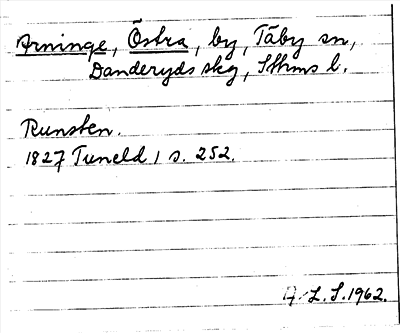 Arninge, Östra, by, Täby sn,
Danderyds skg, Sthms l.
Runsten.
1827 Tuneld 1 s. 252.
A. L. S. 1962.